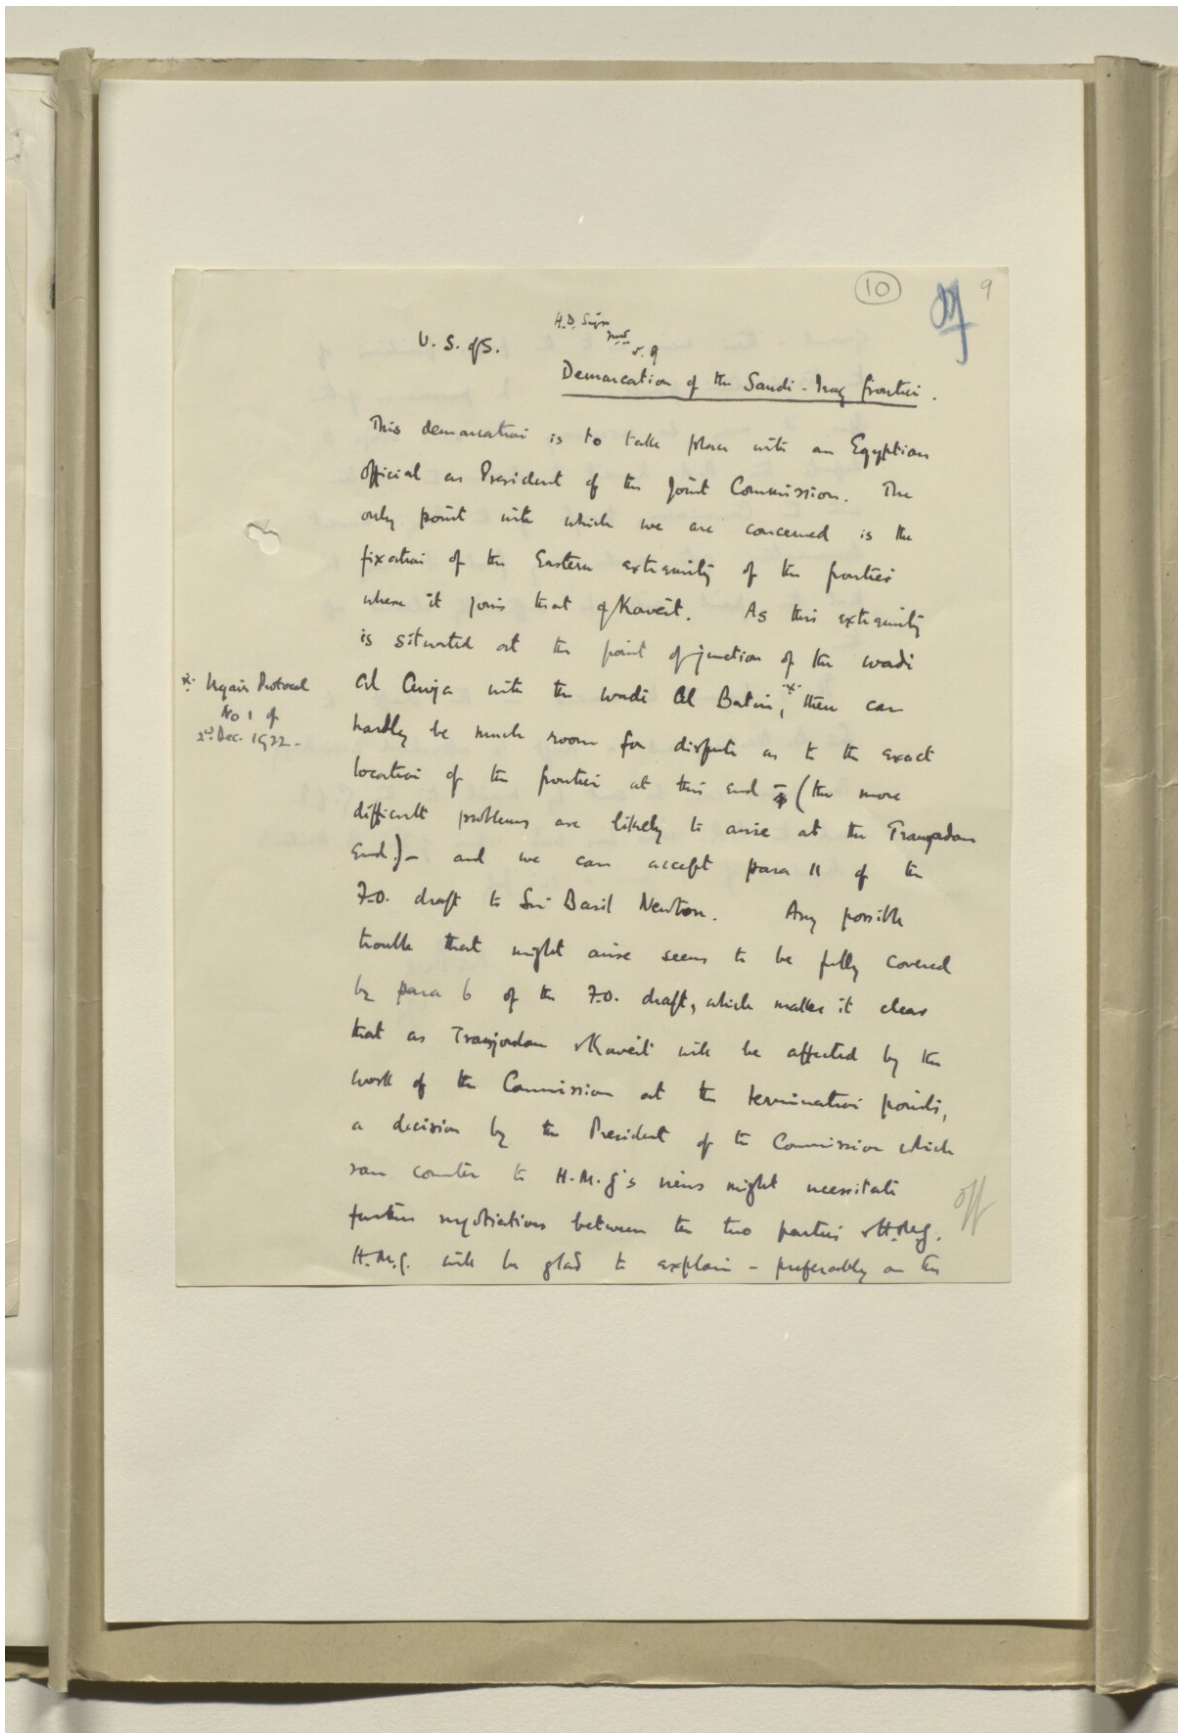 10
9
U. S. of S.
Demarcation of the Saudi-Iraq frontier.
This demarcation is to take place with an Egyptian
official as President of the Joint Commission. The
only point with which we are concerned is the
fixation of the Eastern extremity of the frontier
where it joins that of Koweit. As this extremity
is situated at the point of junction of the wadi
al Auja with the wadi Al Batin,* there can
hardly be much room for dispute as to the exact
location of the frontier at this end (the more
difficult problems are likely to arise at the Transjordan
end.) - and we can accept para 11 of the
F.O. draft to Sir Basil Newton. Any possible
trouble that might arise seems to be fully covered
by para 6 of the F.O. draft, which makes it clear
that as Transjordan & Koweit will be affected by the
work of the Commission at the termination points,
a decision by the President of the Commission which
ran counter to H.M.G's views might necessitate
further negotiations between the two parties & H.M.G.
H.M.G. will be glad to explain - preferably on the
* Uqair Protocol
No 1 of
2nd Dec. 1922 -